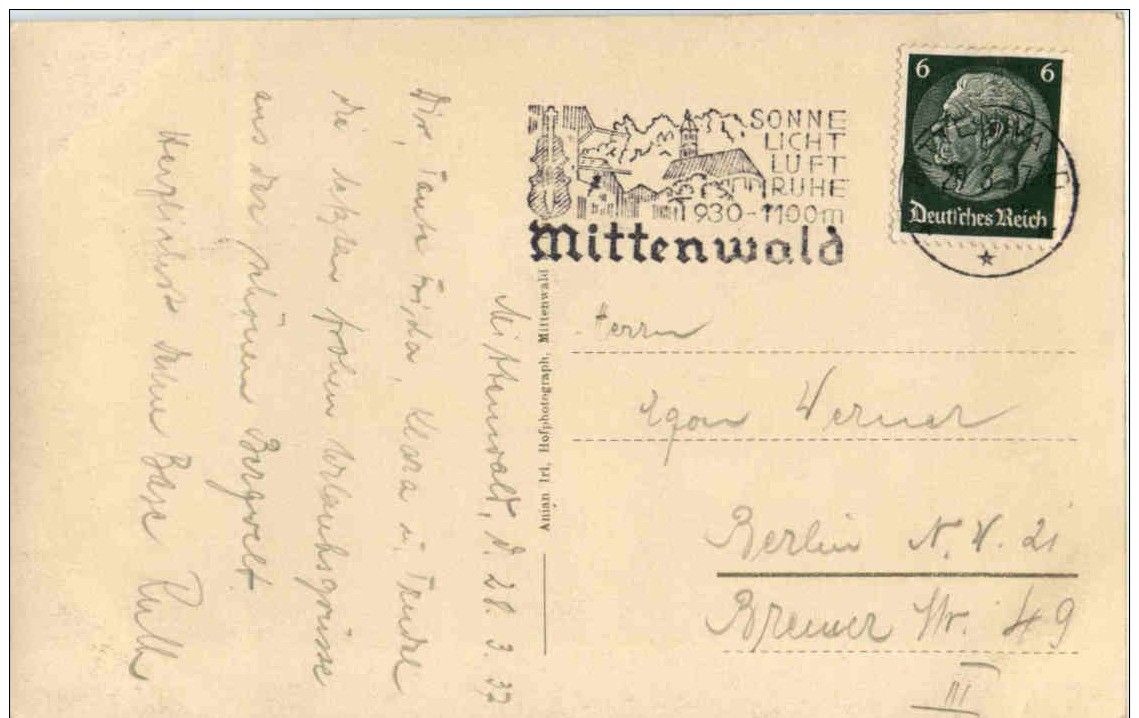 Mittenwalt, d. 28. 3. 37
Dir, Tante Frida, Klara u. Trudel
die letzten frohen Urlaubsgrüsse
aus der schönen Bergwelt.
Herzlichst Deine Base Ruth.
Anian Irl, Hofphotograph, Mittenwald
SONNE
LICHT
LUFT
RUHE
930-1100m
Mittenwald
6 6
Deutsches Reich
Herrn
Egon Werner
Berlin N.W. 21
Bremer Str. 49
III